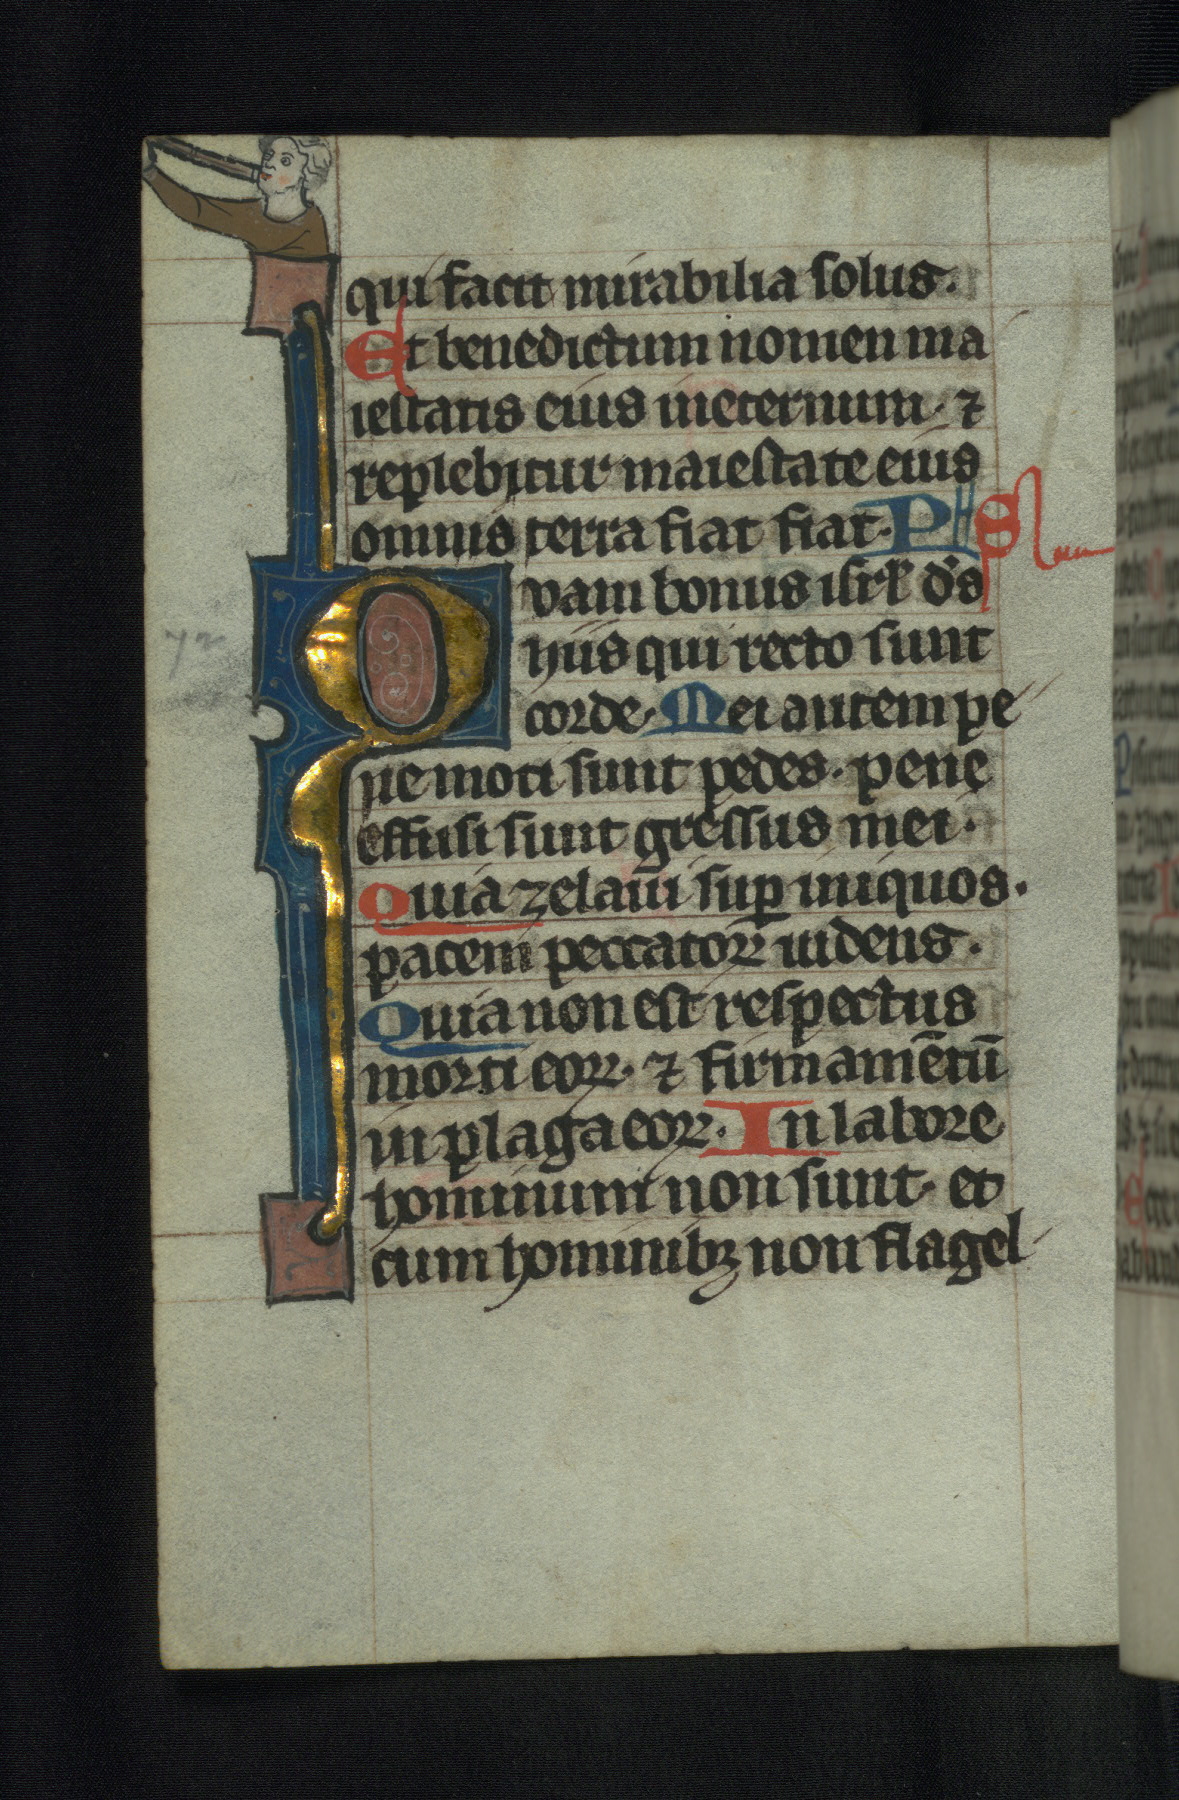 qui facit mirabilia solus.
Et benedictum nomen ma
iestatis eius ineternum. ⁊
replebitur maiestate eius
omnis terra fiat fiat. Ps
Quam bonus isrl' ds
hiis qui recto sunt
corde. Mei autem pe
ne moti sunt pedes. pene
effusi sunt gressus mei.
Quia zelaui sup iniquos.
pacem peccatoꝝ uidens.
Quia non est respectus
morti eoꝝ. ⁊ firmamētū
in plaga eoꝝ. In labore
hominum non sunt. et
cum hominibꝫ non flagel